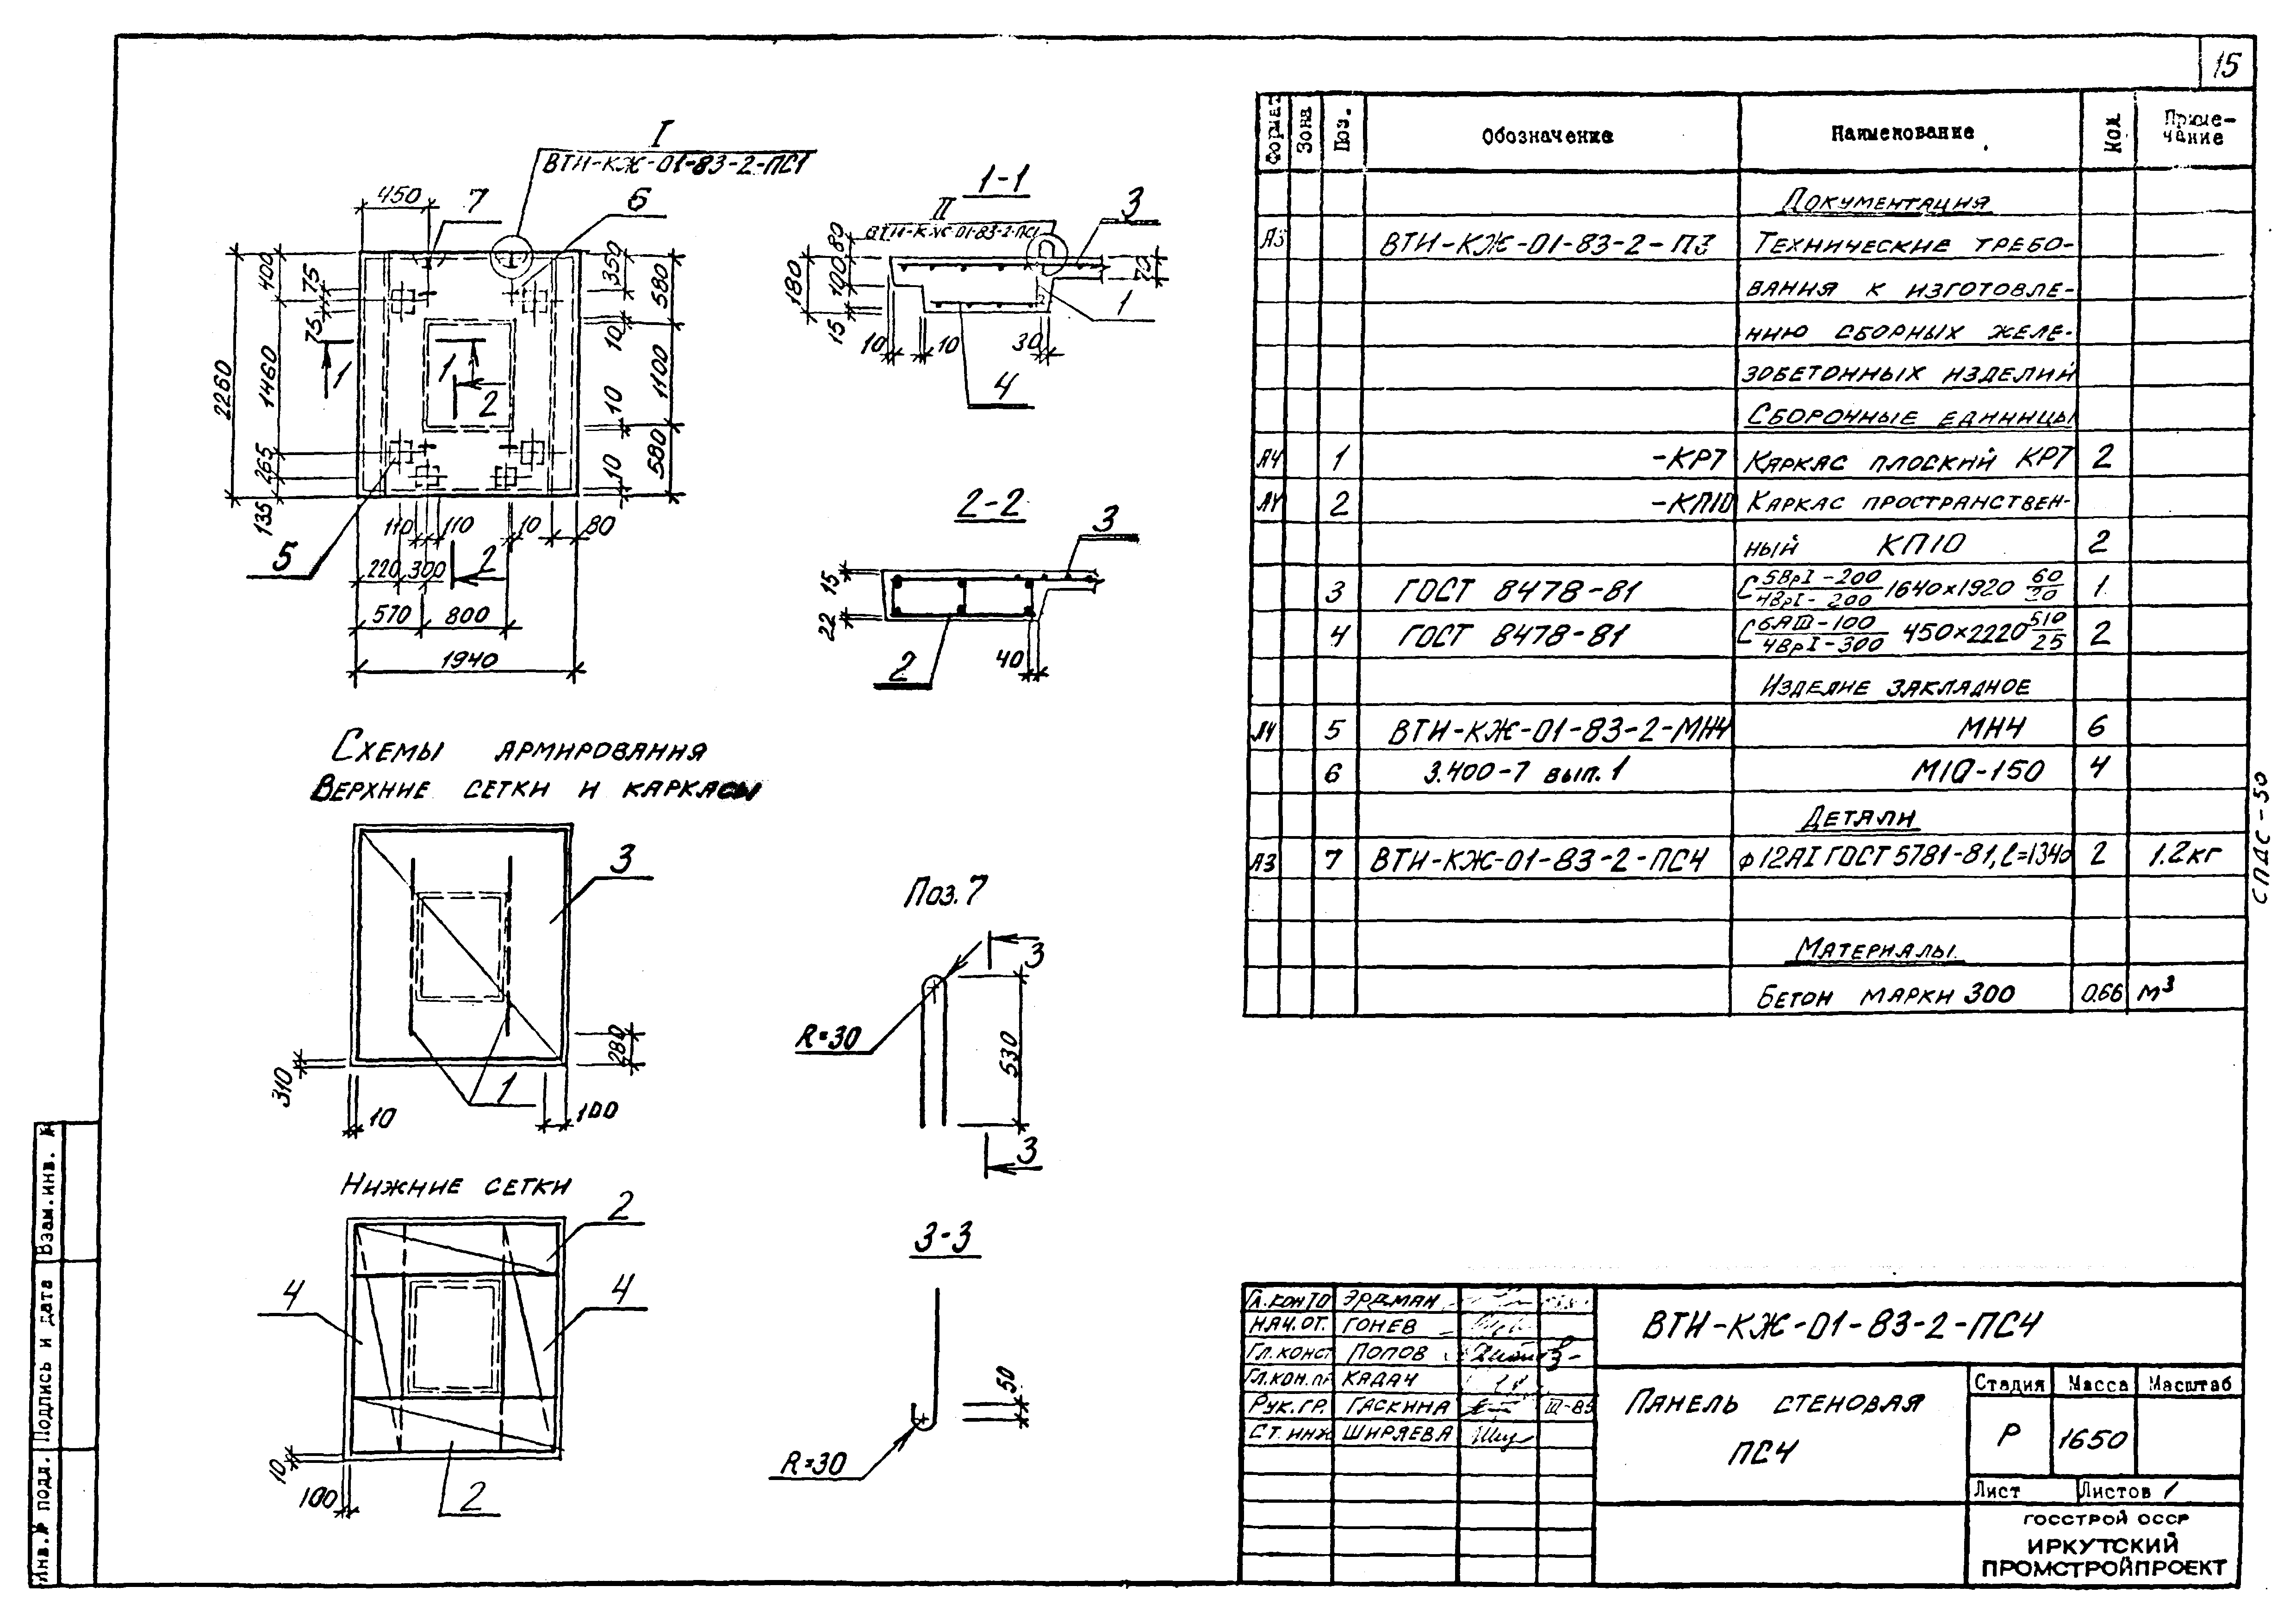 15
I
ВТИ-КЖ-01-83-2-ПС1
450
7
6
400
75
75
2260
1460
265
135
1
1
2
350
580
10
1100
10
580
10
5
110
110
10
80
220
300
2
570
800
1940
1-1
II
ВТИ-КЖ-01-83-2-ПС1
3
80
180
100
15
70
1
10
10
30
4
2-2
3
15
22
40
2
Схемы армирования
Верхние сетки и каркасы
3
280
310
10
1
100
Нижние сетки
2
4
4
10
100
2
Поз.7
3
R=30
530
3
3-3
50
R=30
Формат Зона Поз. Обозначение Наименование Кол. Приме-
чание
Документация
А3 ВТИ-КЖ-01-83-2-ПЗ Технические требо-
вания к изготовле-
нию сборных желе-
зобетонных изделий
Сборочные единицы
А4 1 -КР7 Каркас плоский КР7 2
А4 2 -КП10 Каркас пространствен-
ный КП10 2
3 ГОСТ 8478-81 С 5ВрI-200/4ВрI-200 1640×1920 60/20 1
4 ГОСТ 8478-81 С 6АIII-100/4ВрI-300 450×2220 510/25 2
Изделие закладное
А4 5 ВТИ-КЖ-01-83-2-МН4 МН4 6
6 3.400-7 вып.1 М10-150 4
Детали
А3 7 ВТИ-КЖ-01-83-2-ПС4 ф12АI ГОСТ 5781-81, ℓ=1340 2 1.2кг
Материалы
Бетон марки 300 0.66 м³
СПДС-50
Взам.инв. №
Подпись и дата
Инв.№ подл.
Гл.конто Эрдман
Нач.от. Гонев
Гл.конст Попов
Гл.кон.пр Кадач
Рук.гр. Гаскина III-85
Ст.инж Ширяева
ВТИ-КЖ-01-83-2-ПС4
Панель стеновая
ПС4
Стадия Масса Масштаб
Р 1650
Лист Листов 1
ГОССТРОЙ СССР
ИРКУТСКИЙ
ПРОМСТРОЙПРОЕКТ